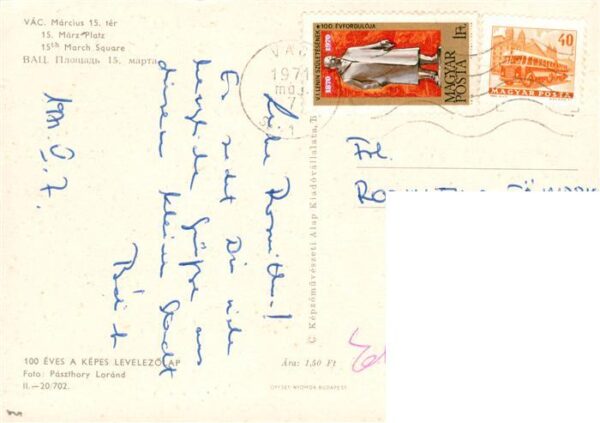 VÁC. Március 15. tér
15. März-Platz
15th March Square
ВАЦ. Площадь 15. марта
Liebe Roswitha!
Es sendet Dir viele
herzliche Grüße aus
diesem kleinen Stadt
1971. V. 7.
100 ÉVES A KÉPES LEVELEZŐLAP
Foto: Pászthory Loránd
II.—20/702.
Ára: 1,50 Ft
OFFSET-NYOMDA BUDAPEST
C Képzőművészeti Alap Kiadóvállalata, B
VÁC
1971
máj.
7
V. I. LENIN SZÜLETÉSÉNEK 100. ÉVFORDULÓJA
1870
1970
1Ft
MAGYAR POSTA
40
MAGYAR POSTA
Frl.